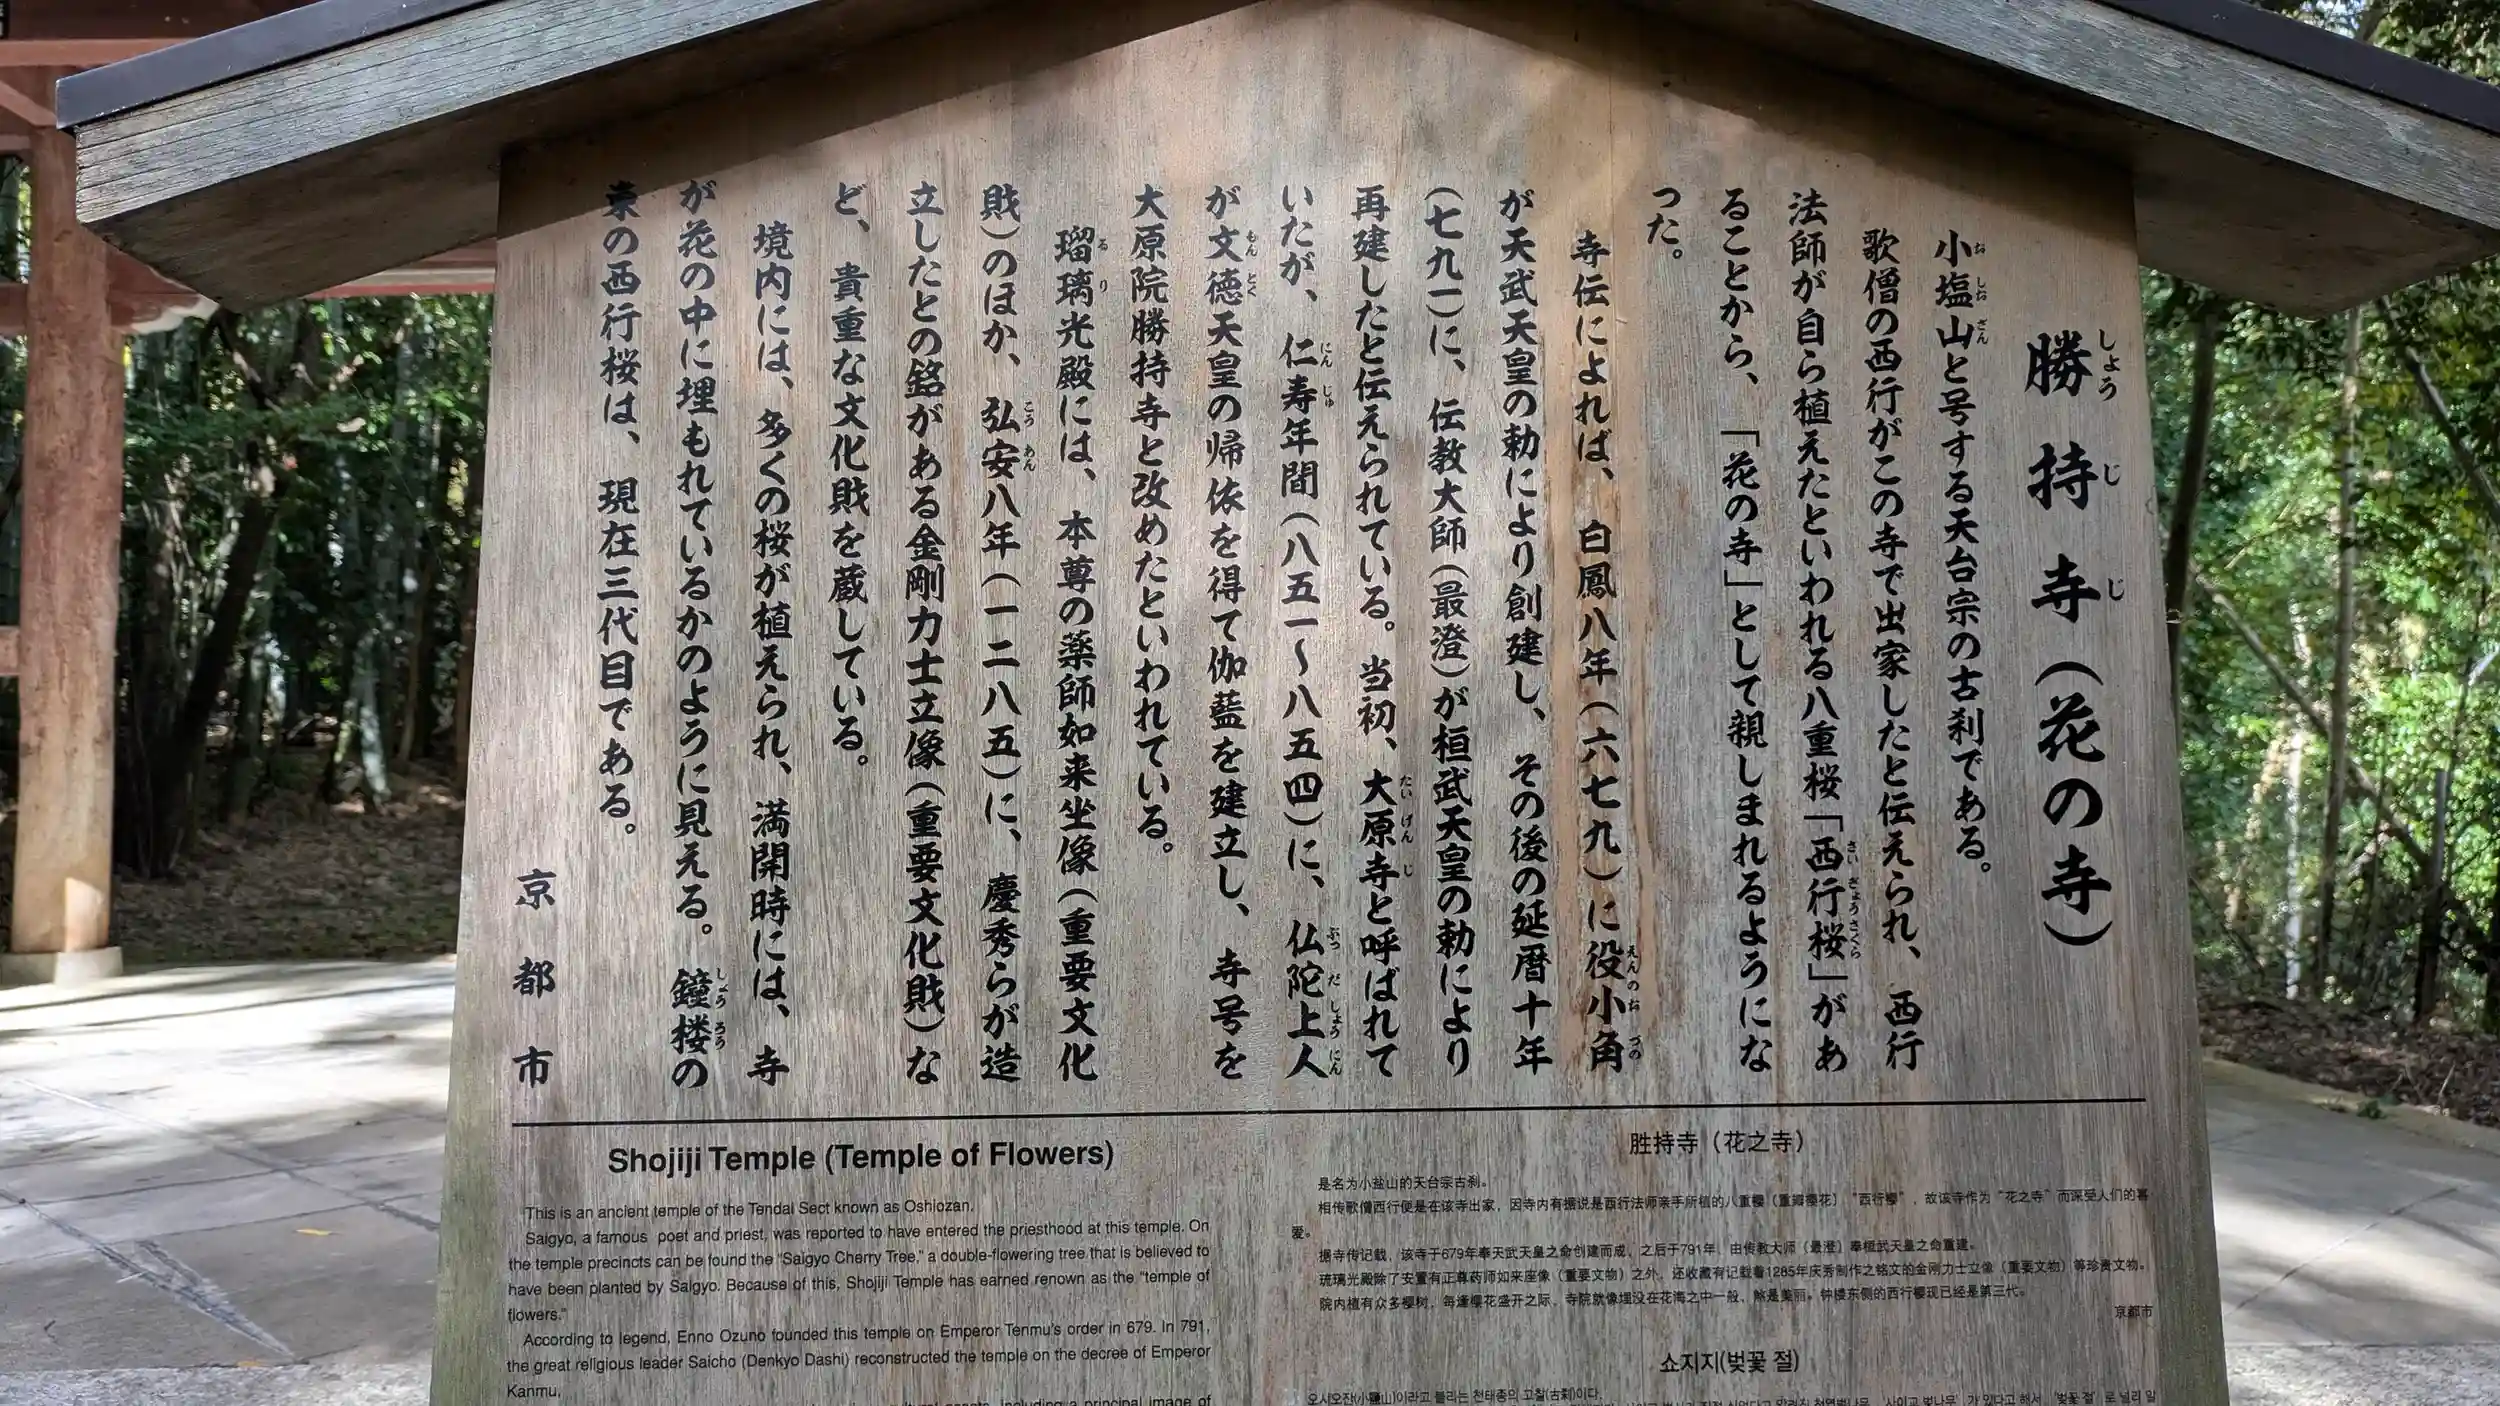 勝持寺（花の寺）
小塩山と号する天台宗の古刹である。
歌僧の西行がこの寺で出家したと伝えられ、西行
法師が自ら植えたといわれる八重桜「西行桜」があ
ることから、「花の寺」として親しまれるようにな
った。
寺伝によれば、白鳳八年（六七九）に役小角
が天武天皇の勅により創建し、その後の延暦十年
（七九一）に、伝教大師（最澄）が桓武天皇の勅により
再建したと伝えられている。当初、大原寺と呼ばれて
いたが、仁寿年間（八五一～八五四）に、仏陀上人
が文徳天皇の帰依を得て伽藍を建立し、寺号を
大原院勝持寺と改めたといわれている。
瑠璃光殿には、本尊の薬師如来坐像（重要文化
財）のほか、弘安八年（一二八五）に、慶秀らが造
立したとの銘がある金剛力士立像（重要文化財）な
ど、貴重な文化財を蔵している。
境内には、多くの桜が植えられ、満開時には、寺
が花の中に埋もれているかのように見える。鐘楼の
東の西行桜は、現在三代目である。
京都市
Shojiji Temple (Temple of Flowers)
This is an ancient temple of the Tendai Sect known as Oshiozan.
Saigyo, a famous poet and priest, was reported to have entered the priesthood at this temple. On
the temple precincts can be found the "Saigyo Cherry Tree," a double-flowering tree that is believed to
have been planted by Saigyo. Because of this, Shojiji Temple has earned renown as the "temple of
flowers."
According to legend, Enno Ozuno founded this temple on Emperor Tenmu's order in 679. In 791,
the great religious leader Saicho (Denkyo Dashi) reconstructed the temple on the decree of Emperor
Kanmu,
including a principal image of
胜持寺（花之寺）
是名为小盐山的天台宗古刹。
相传歌僧西行便是在该寺出家，因寺内有据说是西行法师亲手所植的八重樱（重瓣樱花）“西行樱”，故该寺作为“花之寺”而深受人们的喜
爱。
据寺传记载，该寺于679年奉天武天皇之命创建而成，之后于791年，由传教大师（最澄）奉桓武天皇之命重建。
琉璃光殿除了安置有正尊药师如来座像（重要文物）之外，还收藏有记载着1285年庆秀制作之铭文的金刚力士立像（重要文物）等珍贵文物。
院内植有众多樱树，每逢樱花盛开之际，寺院就像埋没在花海之中一般，煞是美丽。钟楼东侧的西行樱现已经是第三代。
京都市
쇼지지(벚꽃 절)
오시오잔(小鹽山)이라고 불리는 천태종의 고찰(古刹)이다.